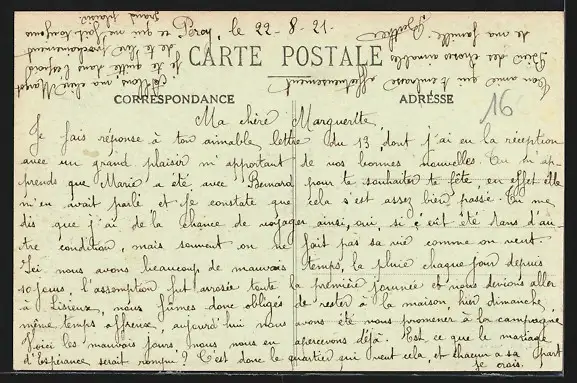 Percy, le 22-8-21.
CARTE POSTALE
CORRESPONDANCE
ADRESSE
16
Ma chère Marguerite
Je fais réponse à ton aimable lettre du 13 dont j'ai eu la réception
avec un grand plaisir m'apportant de vos bonnes nouvelles. Tu m'ap-
prends que Marie a été avec Bernard pour te souhaiter ta fête, en effet elle
m'en avait parlé et je constate que cela s'est assez bien passé. Tu me
dis que j'ai de la chance de voyager ainsi, oui, si ç'eût été dans d'au-
tre condition, mais souvent on ne fait pas sa vie comme on veut.
Ici nous avons beaucoup de mauvais temps, la pluie chaque jour depuis
10 jours, l'assomption fut arrosée toute la première journée et nous devions aller
à Lisieux, nous fûmes donc obligés de rester à la maison, hier dimanche,
même temps affreux, aujourd'hui nous avons été nous promener à la campagne
Voici les mauvais jours, nous nous en apercevons déjà. Est ce que le mariage
d'Espérance serait rompu? C'est donc le quartier qui veut cela, et chacun a sa part
je crois.
Allons, ma chère Margot
je te quitte dans l'espoir
de te lire prochainement
ce qui me fait toujours
grand plaisir.
Ton amie qui t'embrasse affectueusement
Bien des choses aimables
de ma famille.